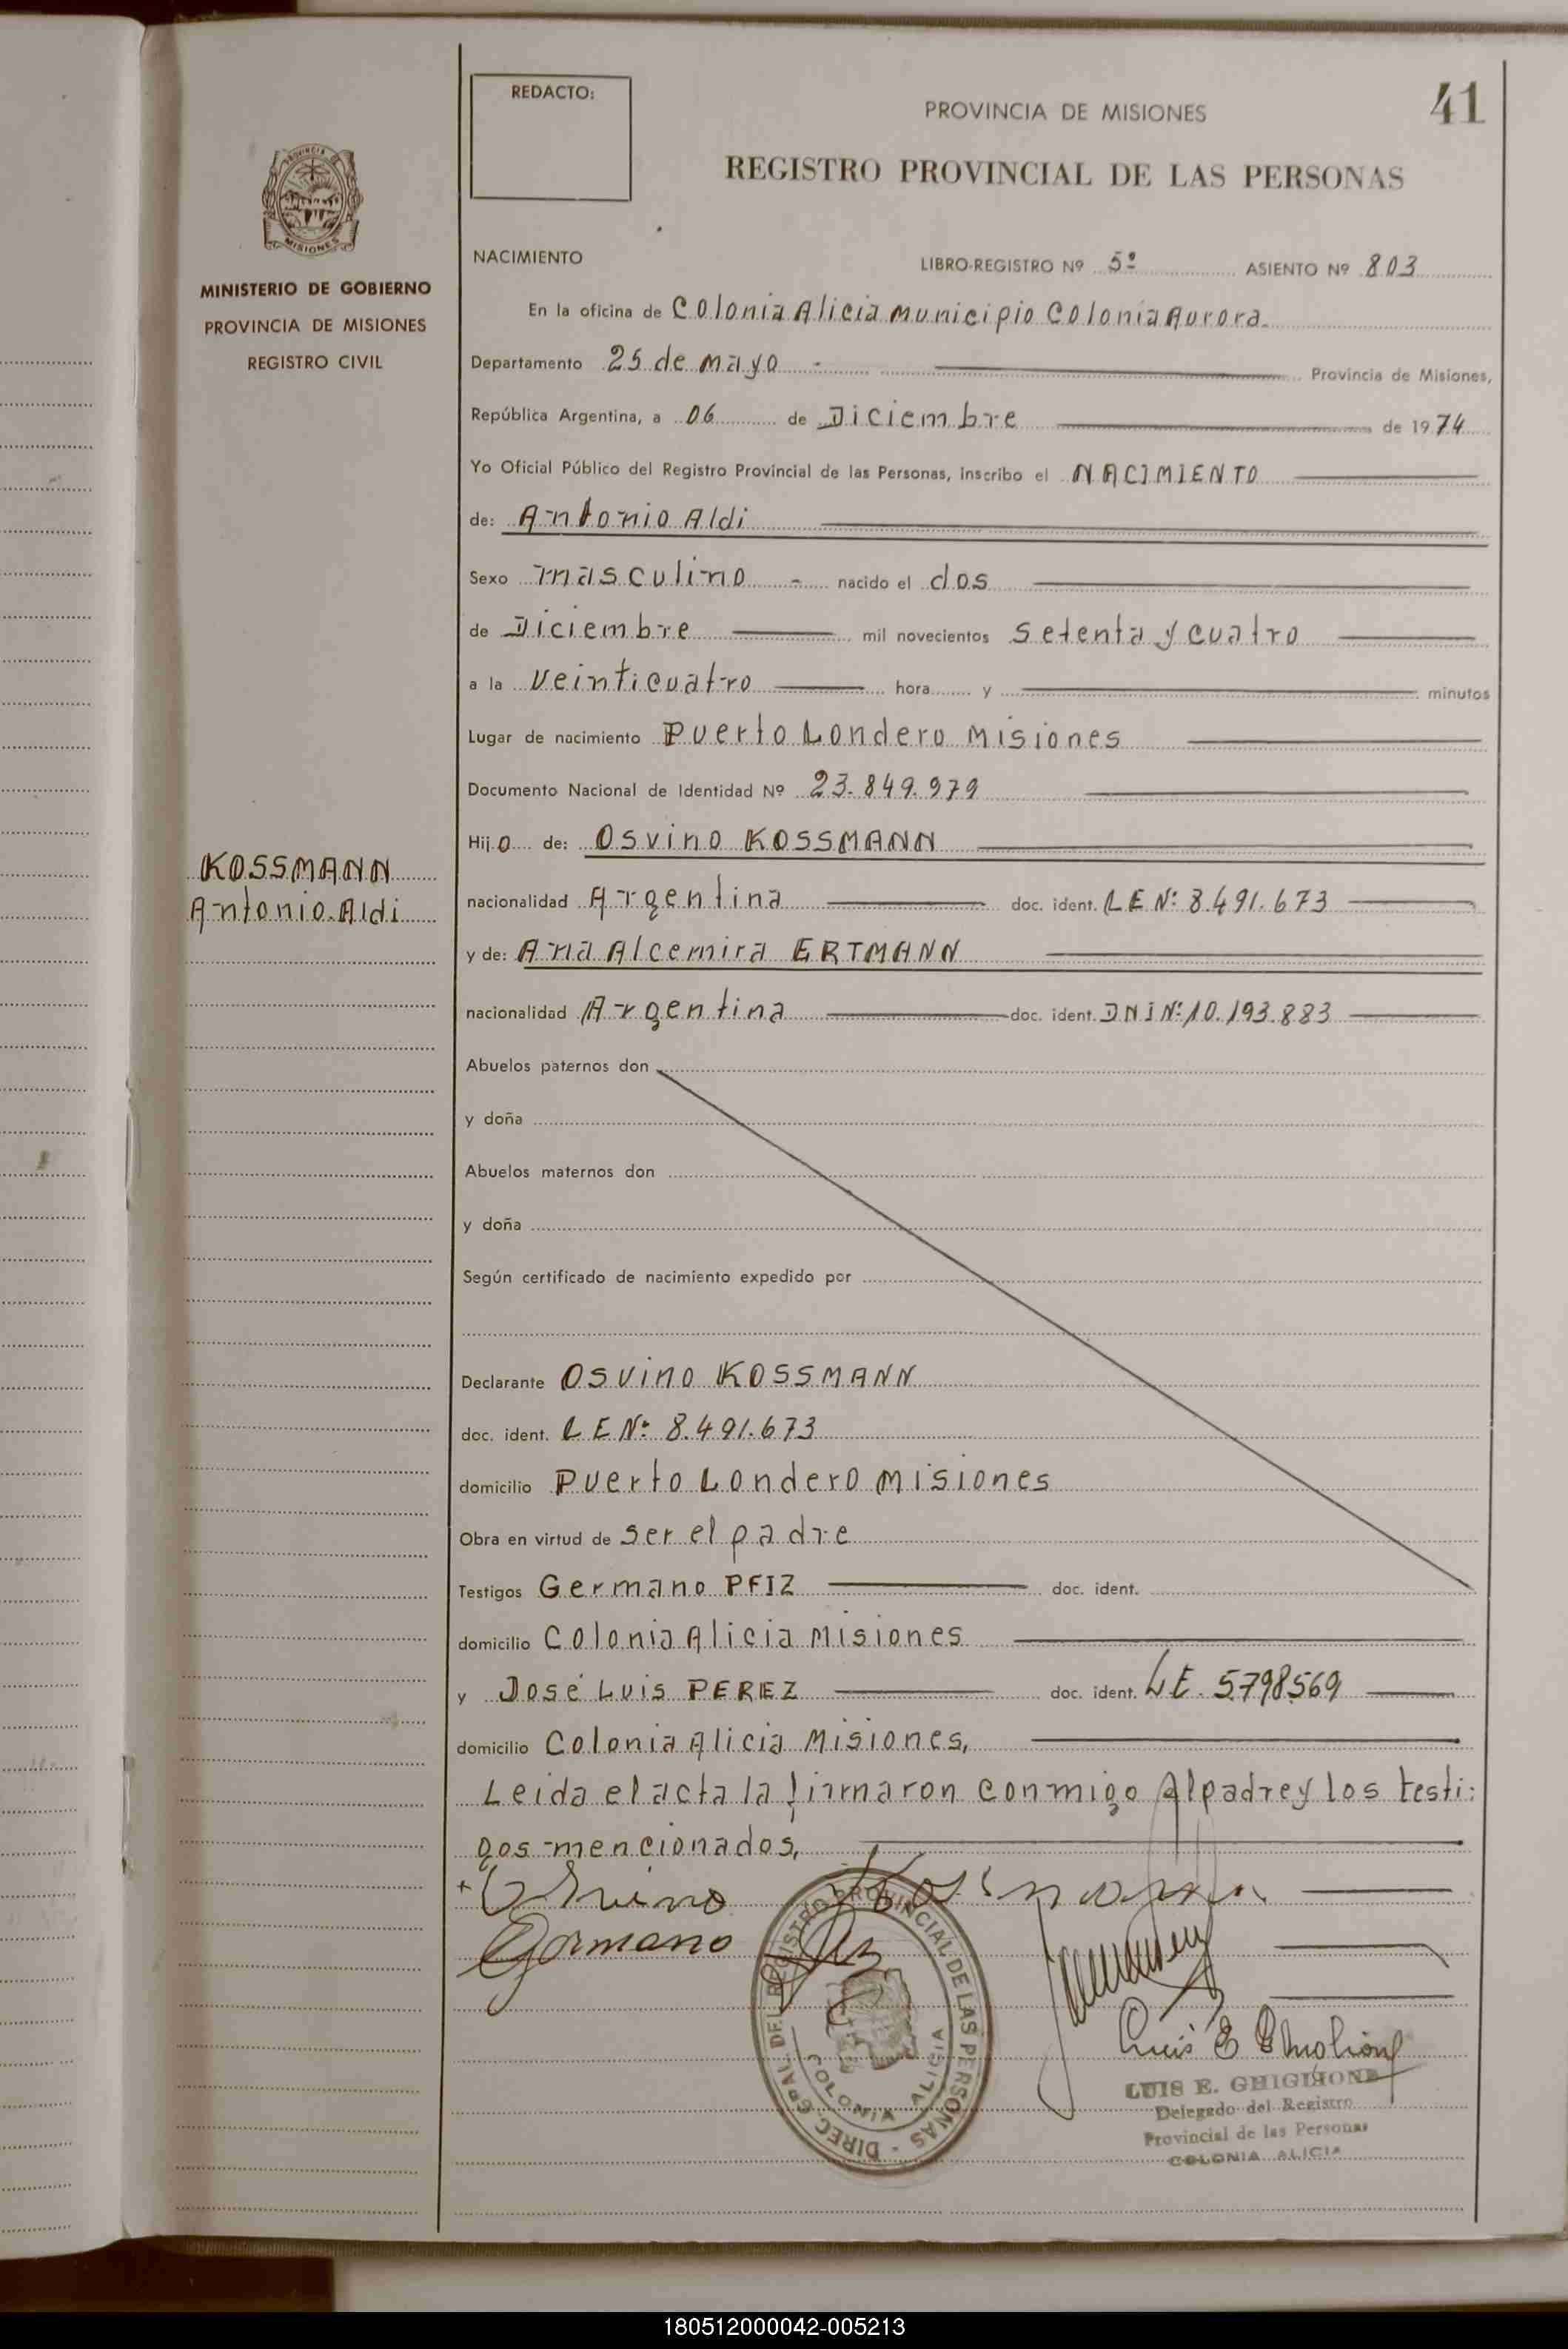 REDACTO:
PROVINCIA DE MISIONES
41
REGISTRO PROVINCIAL DE LAS PERSONAS
MISIONES
MINISTERIO DE GOBIERNO
PROVINCIA DE MISIONES
REGISTRO CIVIL
KOSSMANN
Antonio Aldi
NACIMIENTO LIBRO-REGISTRO Nº 5º ASIENTO Nº 803
En la oficina de Colonia Alicia Municipio Colonia Aurora.
Departamento 25 de Mayo - Provincia de Misiones,
República Argentina, a 06 de Diciembre de 1974
Yo Oficial Público del Registro Provincial de las Personas, inscribo el NACIMIENTO
de: Antonio Aldi
Sexo masculino - nacido el dos
de Diciembre mil novecientos setenta y cuatro
a la veinticuatro hora y minutos
Lugar de nacimiento Puerto Londero Misiones
Documento Nacional de Identidad Nº 23.849.979
Hijo de: Osvino KOSSMANN
nacionalidad Argentina doc. ident. LE Nº: 8.491.673
y de: Ana Alcemira ERTMANN
nacionalidad Argentina doc. ident. DNI Nº: 10.193.883
Abuelos paternos don
y doña
Abuelos maternos don
y doña
Según certificado de nacimiento expedido por
Declarante Osvino KOSSMANN
doc. ident. LE Nº: 8.491.673
domicilio Puerto Londero Misiones
Obra en virtud de ser el padre
Testigos Germano PFIZ doc. ident.
domicilio Colonia Alicia Misiones
y José Luis PEREZ doc. ident. LE. 5798569
domicilio Colonia Alicia Misiones,
Leida el acta la firmaron conmigo Al padre y los testi:
gos mencionados,
Osvino Kossmann
Germano
DIREC. GRAL. DEL REGISTRO PROVINCIAL DE LAS PERSONAS -
COLONIA ALICIA
Luis E Ghiglione
LUIS E. GHIGLIONE
Delegado del Registro
Provincial de las Personas
COLONIA ALICIA
180512000042-005213